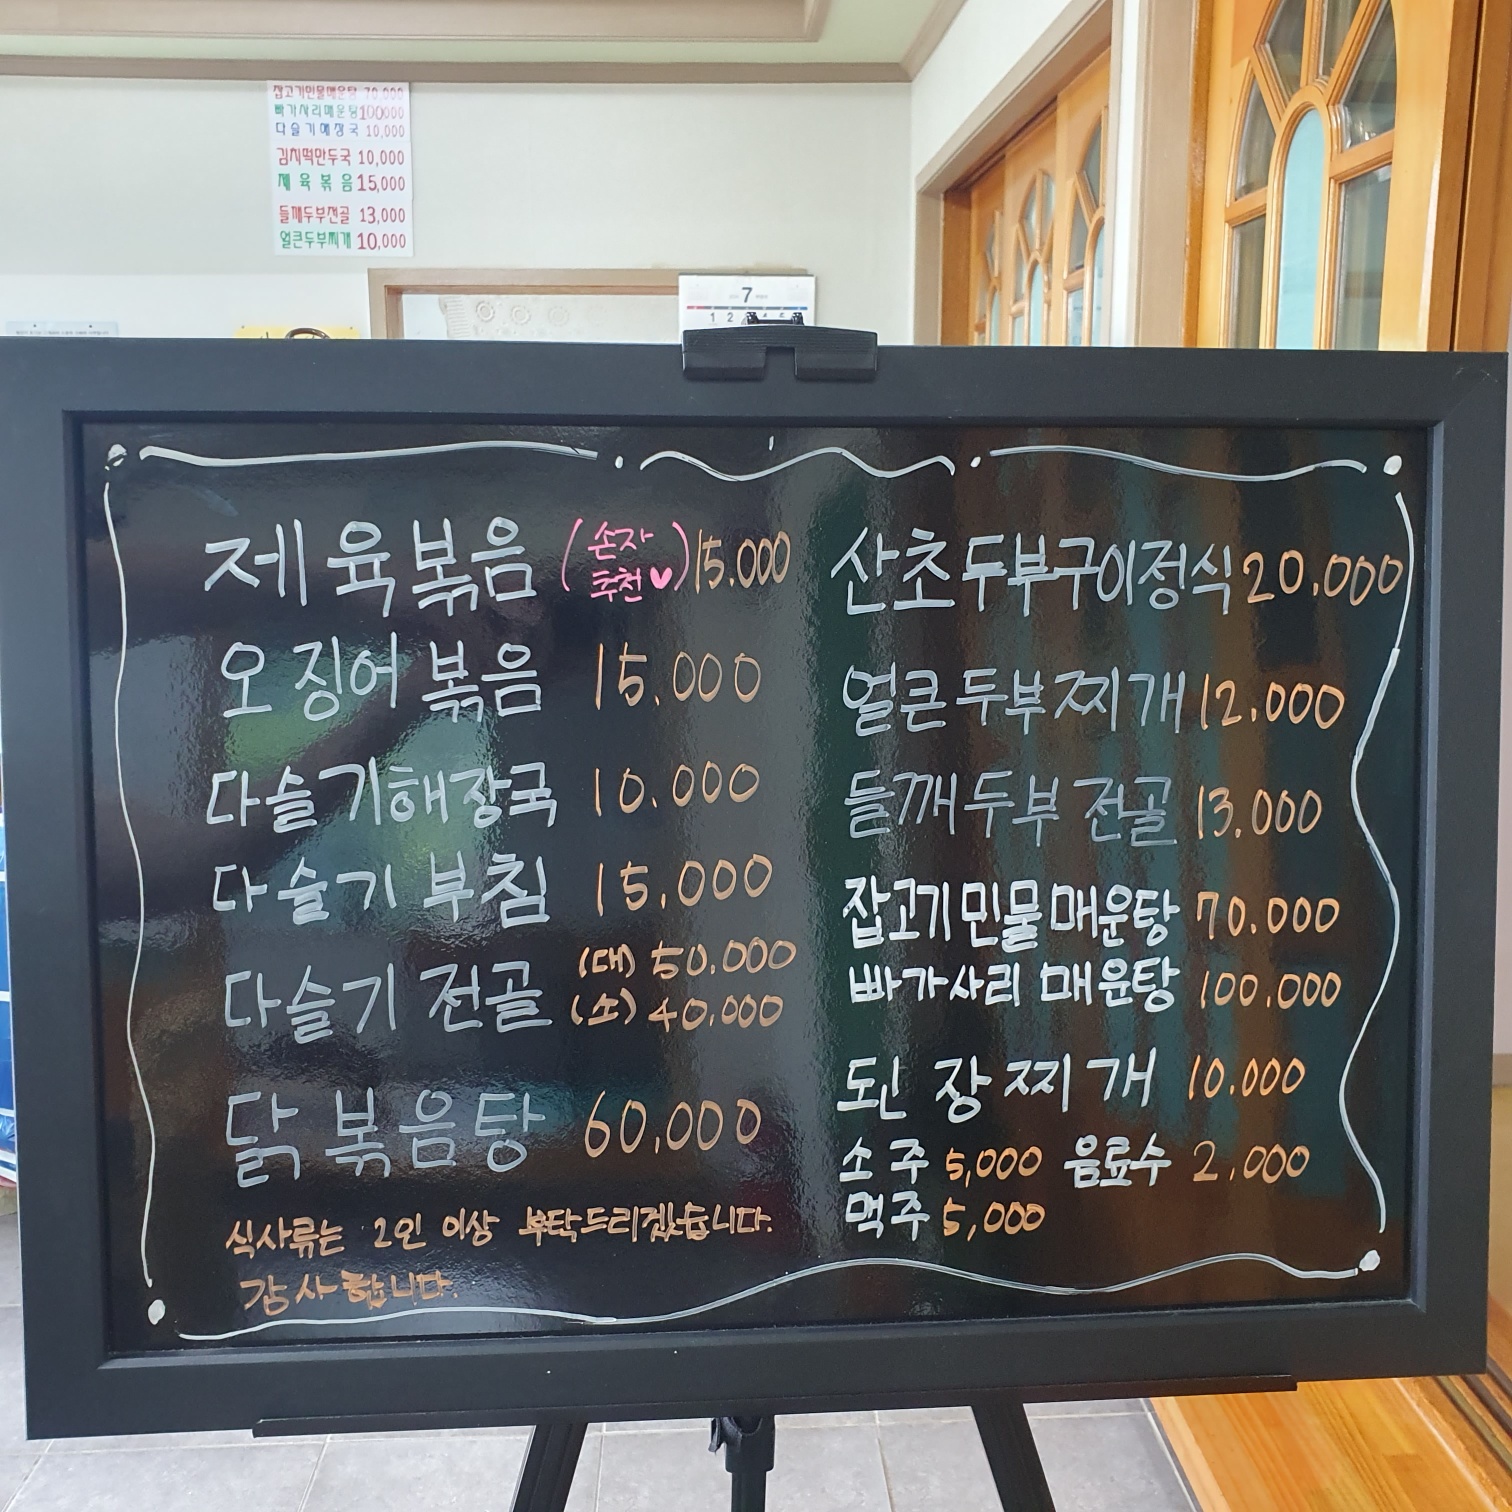 잡고기민물매운탕 70,000
빠가사리매운탕 100000
다슬기해장국 10,000
김치떡만두국 10,000
제육볶음 15,000
들깨두부전골 13,000
얼큰두부찌개 10,000
7
1 2 4 5
제육볶음 (손자 추천♥) 15.000
오징어볶음 15.000
다슬기해장국 10.000
다슬기부침 15,000
다슬기전골 (대) 50.000
(소) 40,000
닭볶음탕 60,000
식사류는 2인 이상 부탁드리겠습니다.
감사합니다.
산초두부구이정식 20.000
얼큰두부찌개 12.000
들깨두부전골 13.000
잡고기민물매운탕 70.000
빠가사리 매운탕 100.000
된장찌개 10.000
소주 5,000 음료수 2.000
맥주 5,000